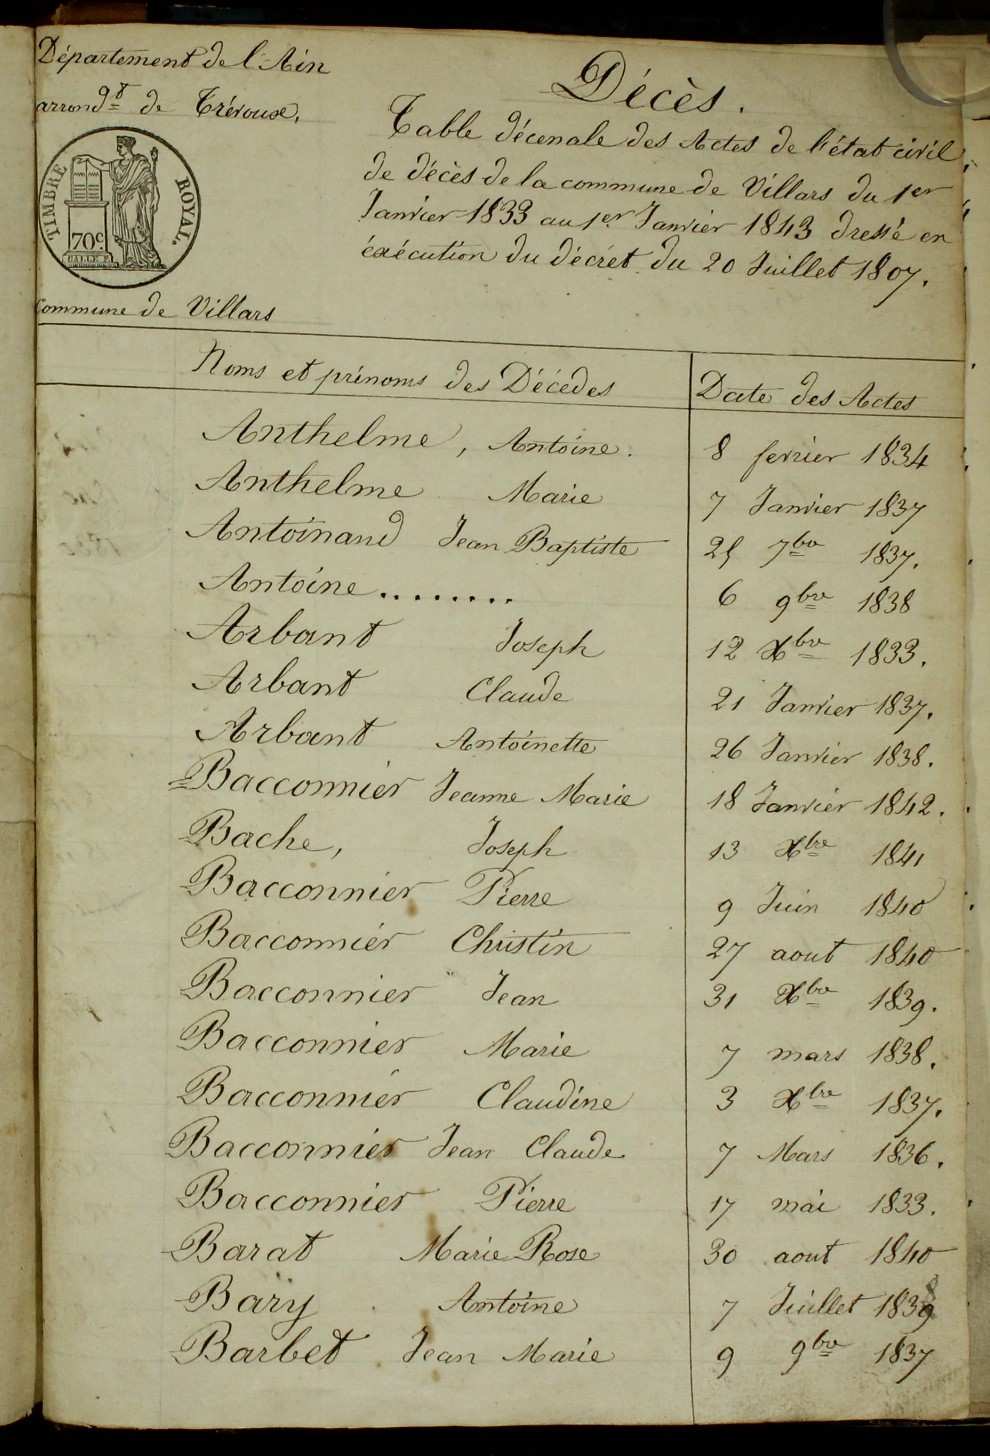 Département de l'Ain
arrond.t de Trévoux.
TIMBRE ROYAL.
70c
Commune de Villars
Décès.
Table décenale des Actes de l'état civil
de décès de la commune de Villars du 1er
Janvier 1833 au 1er Janvier 1843 dressé en
éxécution du décrét du 20 Juillet 1807.
Noms et prénoms des Décédes Date des Actes
Anthelme, Antoine. 8 fevrier 1834
Anthelme Marie 7 Janvier 1837
Antoinand Jean Baptiste 25 7bre 1837.
Antoine ........ 6 9bre 1838
Arbant Joseph 12 Xbre 1833.
Arbant Claude 21 Janvier 1837.
Arbant Antoinette 26 Janvier 1838.
Bacconnier Jeanne Marie 18 Janvier 1842.
Bache, Joseph 13 Xbre 1841
Bacconnier Pierre 9 Juin 1840
Bacconnier Christin 27 aout 1840
Bacconnier Jean 31 Xbre 1839.
Bacconnier Marie 7 mars 1838.
Bacconnier Claudine 3 Xbre 1837.
Bacconnier Jean Claude 7 Mars 1836.
Bacconnier Pierre 17 mai 1833.
Barat Marie Rose 30 aout 1840
Barÿ Antoine 7 Juillet
Barbet Jean Marie 9 9bre 1837